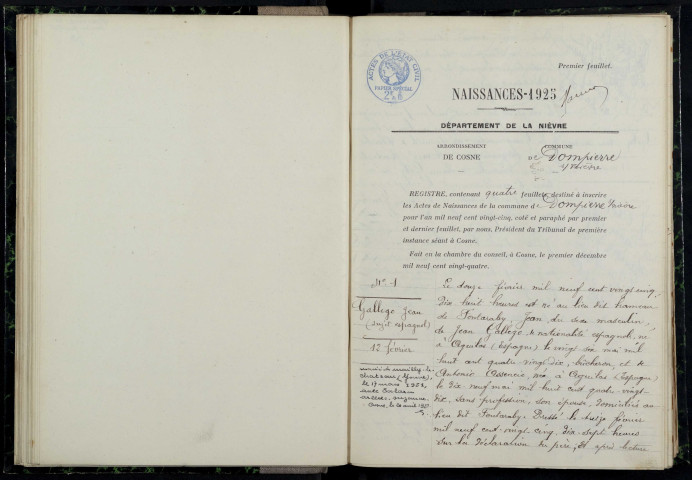 Premier feuillet.
ACTES DE L'ETAT CIVIL
PAPIER SPECIAL
NAISSANCES-1925
DÉPARTEMENT DE LA NIÈVRE
ARRONDISSEMENT
DE COSNE
COMMUNE
DE Dompierre
s/ Nièvre
REGISTRE, contenant quatre feuillets, destiné à inscrire
les Actes de Naissances de la commune de Dompierre s/ Nièvre
pour l'an mil neuf cent vingt-cinq, coté et paraphé par premier
et dernier feuillet, par nous, Président du Tribunal de première
instance séant à Cosne.
Fait en la chambre du conseil, à Cosne, le premier décembre
mil neuf cent vingt-quatre.
N° 1
Gallégo Jean
(sujet espagnol)
12 février
le 17 mars 1951
avec
Suzanne
Le douze février mil neuf cent vingt cinq,
dix huit heures est né au lieu dit hameau
de Fontaraby Jean, du sexe masculin,
de Jean Gallégo, de nationalité espagnole, né
à Aguilas (Espagne) le vingt six mai mil
huit cent quatre vingt dix, bûcheron, et de
Antonia Assencio, née à Aguilas (Espagne)
le dix neuf mai mil huit cent quatre vingt-
dix, sans profession, son épouse, domiciliés au
lieu dit Fontaraby. Dressé le treize février
mil neuf cent vingt-cinq, dix-sept heures
sur la déclaration du père, Et après lecture